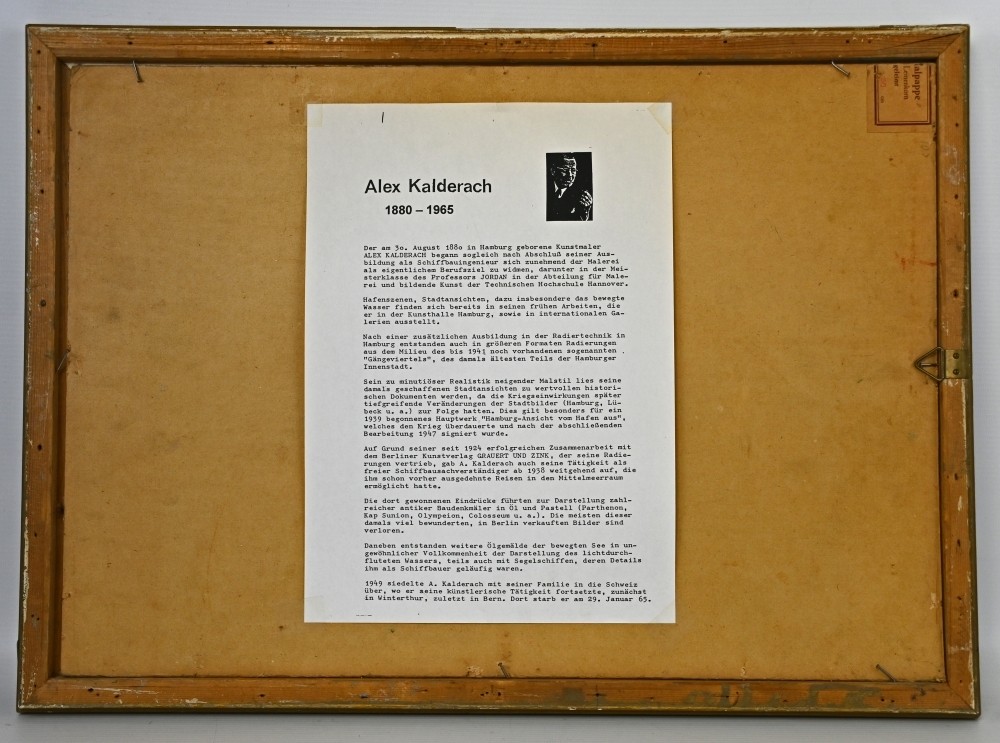 Alex Kalderach
1880 – 1965
Der am 3o. August 188o in Hamburg geborene Kunstmaler
ALEX KALDERACH begann sogleich nach Abschluß seiner Aus-
bildung als Schiffbauingenieur sich zunehmend der Malerei
als eigentlichem Berufsziel zu widmen, darunter in der Mei-
sterklasse des Professors JORDAN in der Abteilung für Male-
rei und bildende Kunst der Technischen Hochschule Hannover.
Hafenszenen, Stadtansichten, dazu insbesondere das bewegte
Wasser finden sich bereits in seinen frühen Arbeiten, die
er in der Kunsthalle Hamburg, sowie in internationalen Ga-
lerien ausstellt.
Nach einer zusätzlichen Ausbildung in der Radiertechnik in
Hamburg entstanden auch in größeren Formaten Radierungen
aus dem Milieu des bis 1941 noch vorhandenen sogenannten .
"Gängeviertels", des damals ältesten Teils der Hamburger
Innenstadt.
Sein zu minutiöser Realistik neigender Malstil lies seine
damals geschaffenen Stadtansichten zu wertvollen histori-
schen Dokumenten werden, da die Kriegseinwirkungen später
tiefgreifende Veränderungen der Stadtbilder (Hamburg, Lü-
beck u. a.) zur Folge hatten. Dies gilt besonders für ein
1939 begonnenes Hauptwerk "Hamburg-Ansicht vom Hafen aus",
welches den Krieg überdauerte und nach der abschließenden
Bearbeitung 1947 signiert wurde.
Auf Grund seiner seit 1924 erfolgreichen Zusammenarbeit mit
dem Berliner Kunstverlag GRAUERT UND ZINK, der seine Radie-
rungen vertrieb, gab A. Kalderach auch seine Tätigkeit als
freier Schiffbausachverständiger ab 1938 weitgehend auf, die
ihm schon vorher ausgedehnte Reisen in den Mittelmeerraum
ermöglicht hatte.
Die dort gewonnenen Eindrücke führten zur Darstellung zahl-
reicher antiker Baudenkmäler in Öl und Pastell (Parthenon,
Kap Sunion, Olympeion, Colosseum u. a.). Die meisten dieser
damals viel bewunderten, in Berlin verkauften Bilder sind
verloren.
Daneben entstanden weitere Ölgemälde der bewegten See in un-
gewöhnlicher Vollkommenheit der Darstellung des lichtdurch-
fluteten Wassers, teils auch mit Segelschiffen, deren Details
ihm als Schiffbauer geläufig waren.
1949 siedelte A. Kalderach mit seiner Familie in die Schweiz
über, wo er seine künstlerische Tätigkeit fortsetzte, zunächst
in Winterthur, zuletzt in Bern. Dort starb er am 29. Januar 65.